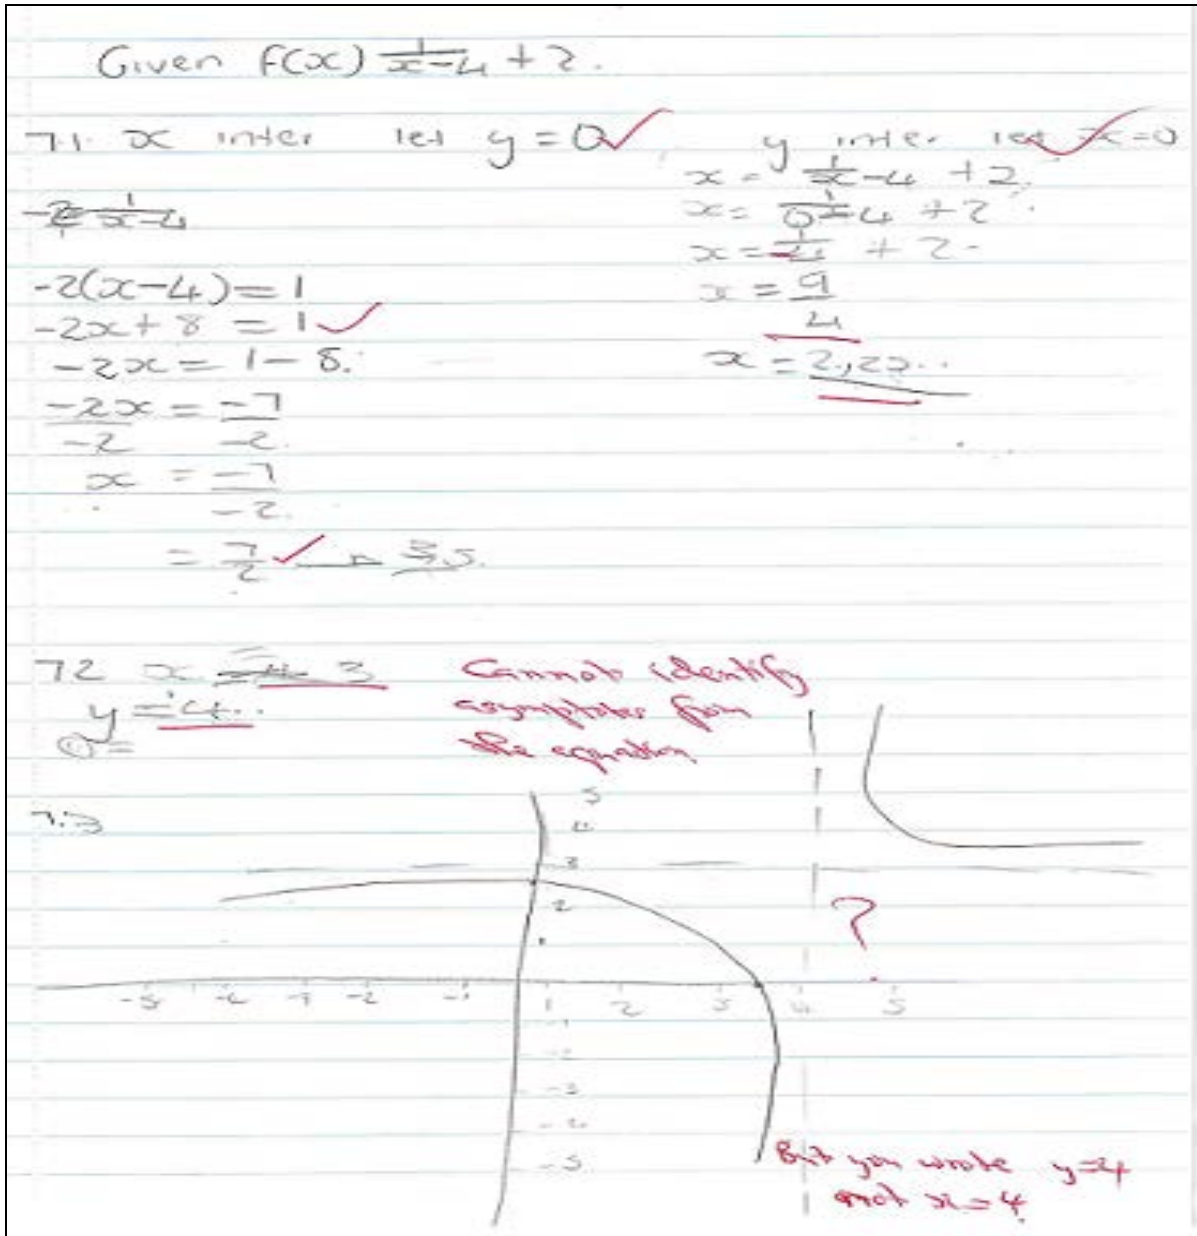 Given f(x) 1/x-4 + 2.
7.1. x inter let y = 0
-2 = 1/x-4
-2(x-4) = 1
-2x + 8 = 1
-2x = 1 - 8.
-2x/-2 = -7/-2.
x = -7/-2.
= 7/2 3.5.
y inter let x = 0
x = 1/x-4 + 2.
x = 1/0-4 + 2
x = 1/-4 + 2
x = 9/4
x = 2,22..
7.2 x = 3
y = 4..
Cannot identify
asymptotes from
the equation
7.3
5
4
3
2
?
-5 -4 -3 -2 -1 1 2 3 4 5
-1
-2
-3
-5
But you wrote y=4
not x=4